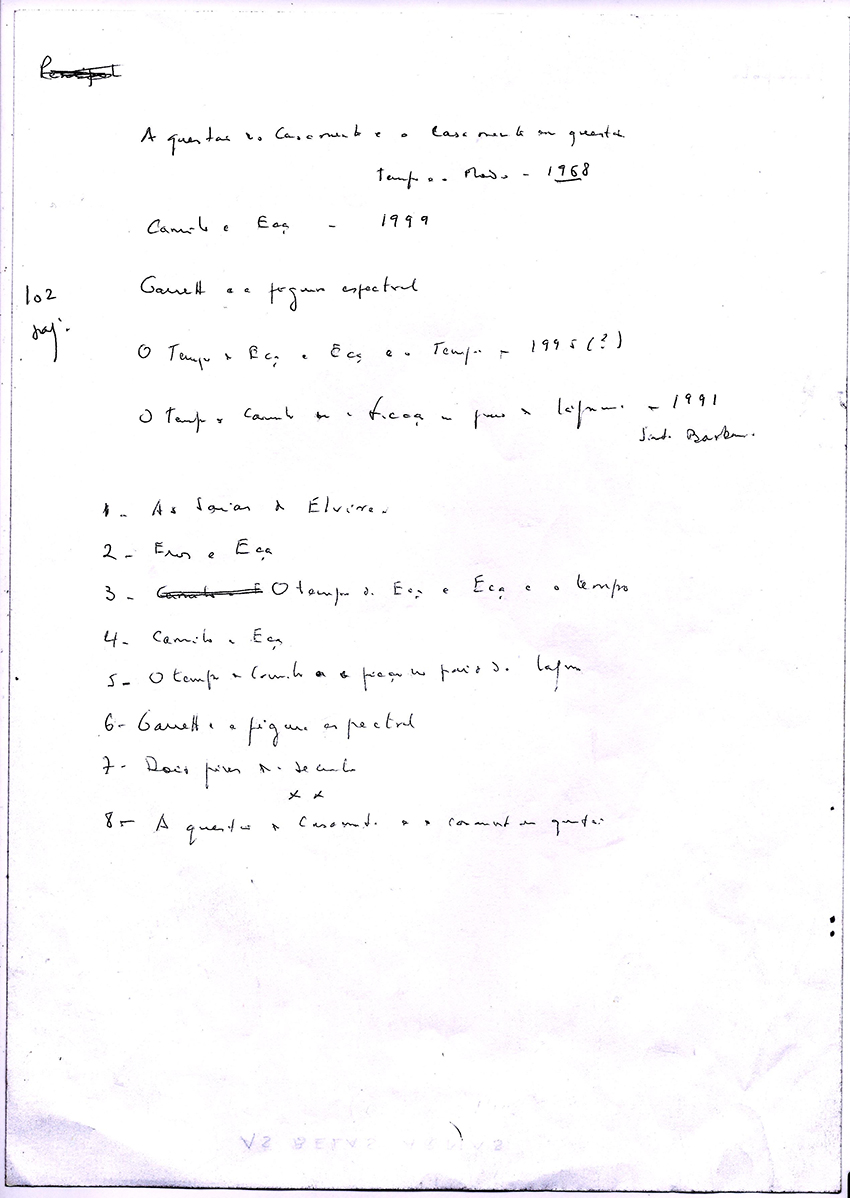 A questão do Casamento e o Casamento em questão
Tempo e o Modo - 1968
Camilo e Eça - 1999
Garrett e a figura espectral
102
pag.
O Tempo de Eça e Eça e o Tempo - 1995 (?)
O tempo de Camilo ou a ficção no país das lágrimas - 1991
1 - As Saias de Elvira
2 - Eros e Eça
3 - O tempo de Eça e Eça e o tempo
4 - Camilo e Eça
5 - O tempo de Camilo ou a ficção no país das lágrimas
6 - Garrett e a figura espectral
7 - Dois fins de século
x x
8 - A questão do Casamento e o casamento em questão